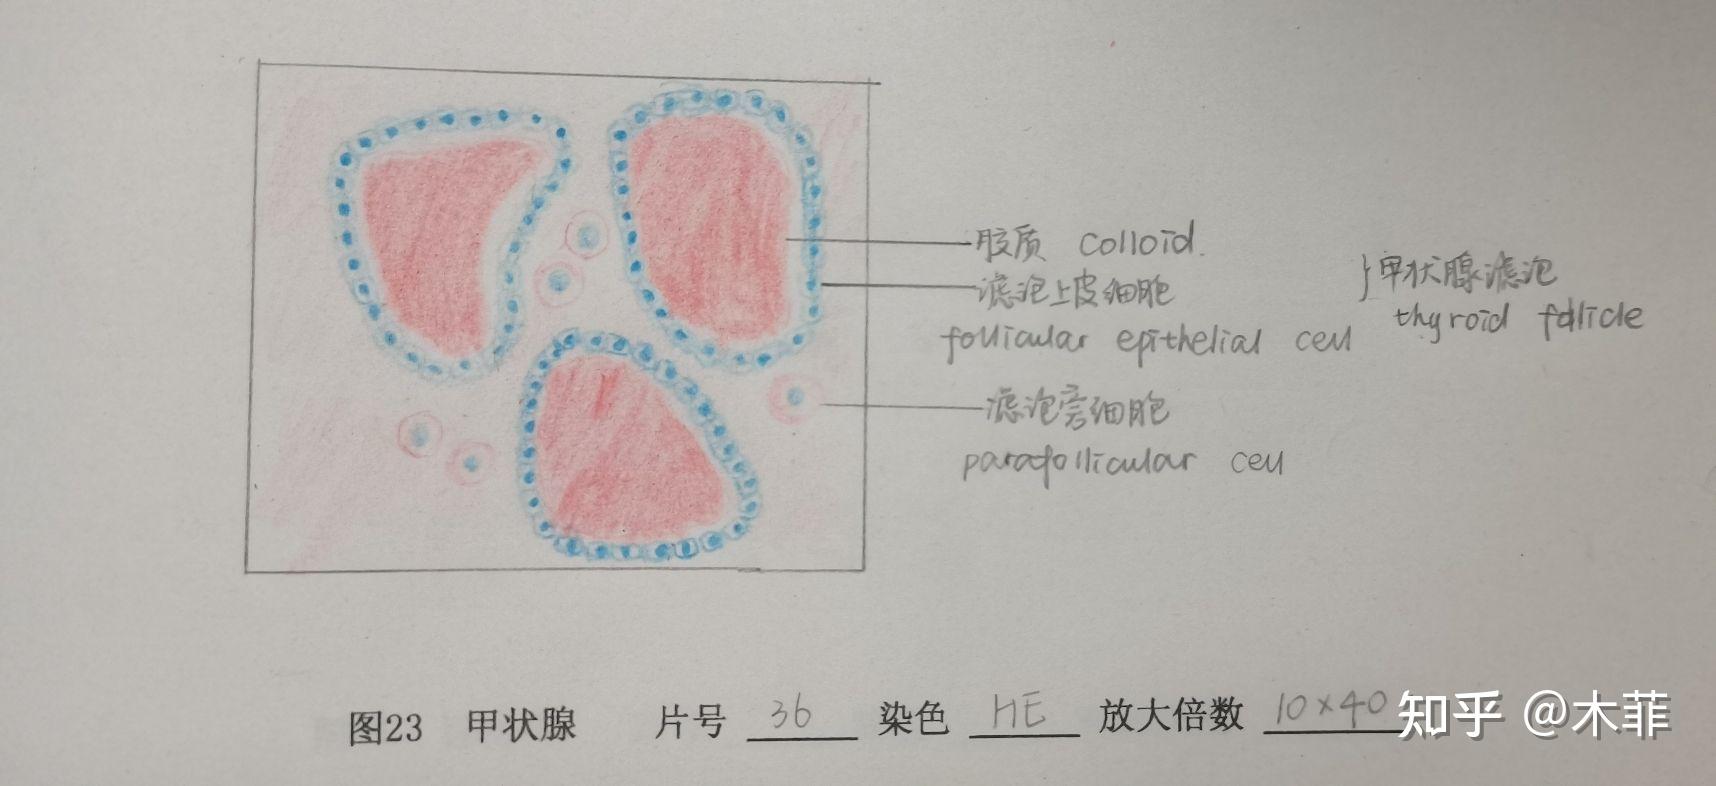 胶质 colloid.
滤泡上皮细胞
follicular epithelial cell
}甲状腺滤泡
thyroid follicle
滤泡旁细胞
parafollicular cell
图23 甲状腺 片号 36 染色 HE 放大倍数 10×40
知乎 @木菲